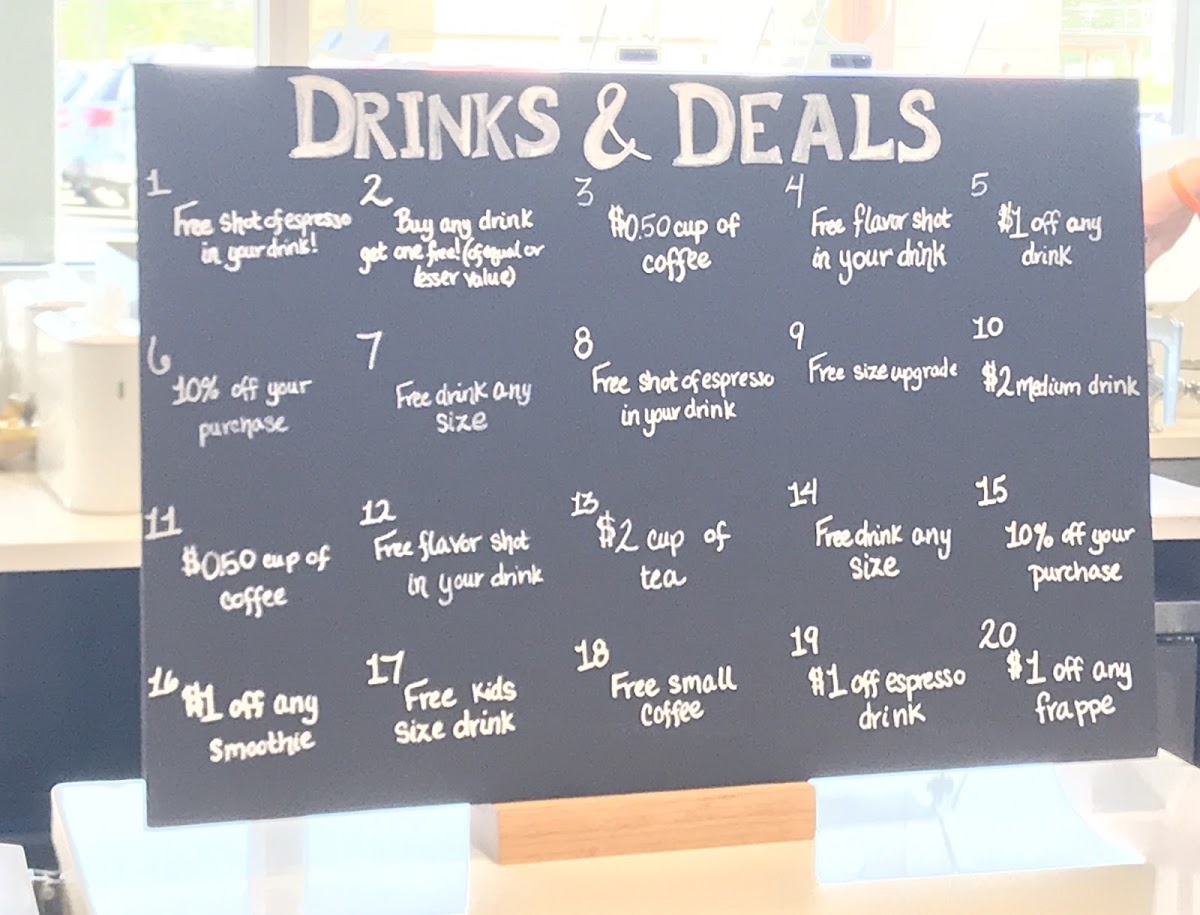 DRINKS & DEALS
1
Free shot of espresso
in your drink!
2
Buy any drink
get one free! (of equal or
lesser value)
3
$0.50 cup of
coffee
4
Free flavor shot
in your drink
5
$1 off any
drink
6
10% off your
purchase
7
Free drink any
size
8
Free shot of espresso
in your drink
9
Free size upgrade
10
$2 medium drink
11
$0.50 cup of
coffee
12
Free flavor shot
in your drink
13
$2 cup of
tea
14
Free drink any
size
15
10% off your
purchase
16
$1 off any
Smoothie
17
Free Kids
Size drink
18
Free small
Coffee
19
$1 off espresso
drink
20
$1 off any
frappe